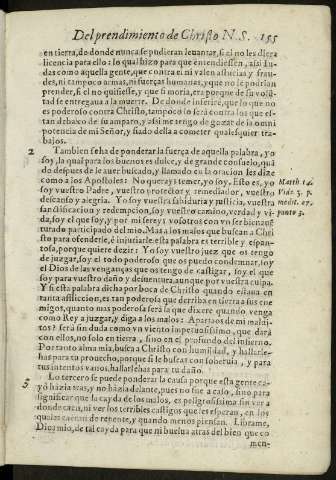 Del prendimiento de Christo N. S. 155
en tierra, do donde nunca se pudieran leuantar, si el no les diera
licencia para ello: lo qual hizo para que entendiessen, assi Iu-
das como aquella gente, que contra el ni valen astucias y frau-
des, ni tampoco armas, ni fuerças humanas, y que no le podrian
prender, si el no quisiesse, y que si moria, era porque de su volũ-
tad se entregaua a la muerte. De donde inferirè, que lo que no
es poderoso contra Christo, tampoco lo serà contra los que es-
tan debaxo de su amparo, y assi me tengo de gozar de la omni
potencia de mi Señor, y fiado della a cometer qualesquier tra-
bajos.
2 Tambien se ha de ponderar la fuerça de aquella palabra, yo
soy, la qual para los buenos es dulce, y de grande consuelo, quã
do despues de le auer buscado, y llamado en la oracion les dize
como a los Apostoles: No querays temer, yo soy. Esto es, yo Matth 14.
soy vuestro Padre, vuestro protector y remediador, vuestro Vide 5. p.
descanso y alegria. Yo soy vuestra sabiduria y justicia, vuestra medit. 27.
sanctificacion y redempcion, soy vuestro camino, verdad y vi- punto 3.
da, soy el que soy, y por mi sereys vosotros con vn ser bienauẽ
turado participado del mio. Mas a los malos que buscan a Chri
sto para ofenderle, è injuriarle esta palabra es terrible y espan-
tosa, porque quiere dezir: Yo soy vuestro juez que os tengo
de juzgar, soy el todo poderoso que os puedo condemnar, soy
el Dios de las venganças que os tengo de castigar, soy el que
soy para vuestro daño y desuentura, aunque por vuestra culpa.
Y si esta palabra dicha por boca de Christo quando estaua en
tanta afliccion, es tan poderosa que derriba en tierra a sus ene
migos, quanto mas poderosa serà la que dixere quando venga
como Rey a juzgar, y diga a los malos: Apartaos de mi maldi-
tos? serà sin duda como vn viento impetuosissimo, que darà
con ellos, no solo en tierra, sino en el profundo del infierno.
Por tanto alma mia, busca a Christo con humildad, y hallarle-
has para tu prouecho, porque si le buscas con soberuia, y para
tus intentos vanos, hallarlehas para tu daño.
3 Lo tercero se puede ponderar la causa porque esta gente ca-
yò házia tras, y no házia delante, pues no fue a caso, sino para
significar que la cayda de los malos, es peligrosissima sin ver a
donde caen, ni ver los terribles castigos que les esperan, en los
quales caeran de repente, y quando menos piensan. Librame,
Dios mio, de tal cayda para que ni buelua atras del bien que co
men-